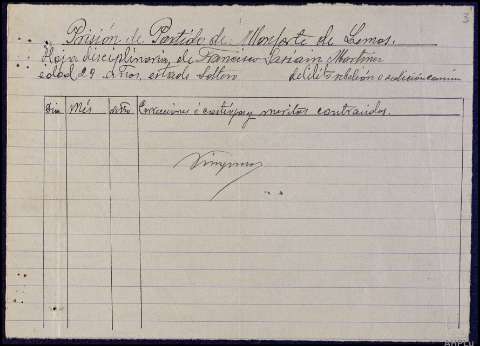 3
Prisión de Partido de Monforte de Lemos.
Hoja disciplinaria de Francisco Martinez
edad 29 años, estado soltero delito rebelión o sedición
Dia Més Año Correcciones é castigos y meritos contraidos.
Ninguno